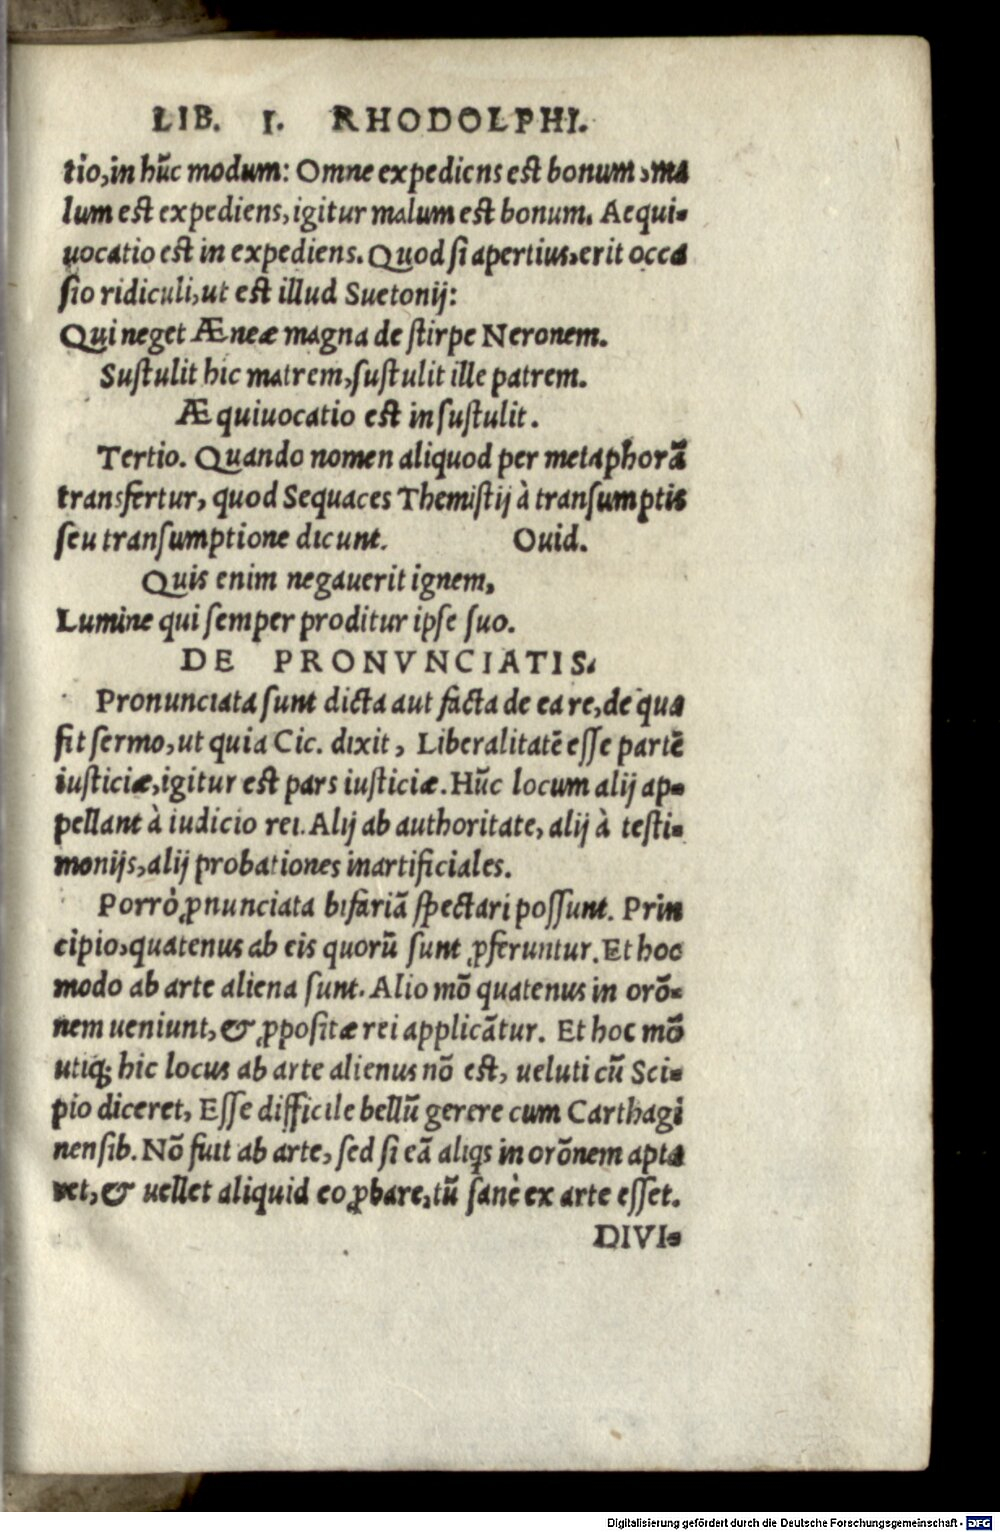 LIB. I. RHODOLPHI.
tio, in hūc modum: Omne expediens est bonum, ma
lum est expediens, igitur malum est bonum. Aequi-
uocatio est in expediens. Quod si apertius, erit occa
sio ridiculi, ut est illud Suetonij:
Qui neget Æneæ magna de stirpe Neronem.
Sustulit hic matrem, sustulit ille patrem.
Æquiuocatio est in sustulit.
Tertio. Quando nomen aliquod per metaphorā
transfertur, quod Sequaces Themistij à transumptis
seu transumptione dicunt. Ouid.
Quis enim negauerit ignem,
Lumine qui semper proditur ipse suo.
DE PRONVNCIATIS.
Pronunciata sunt dicta aut facta de ea re, de qua
fit sermo, ut quia Cic. dixit, Liberalitatē esse partē
iusticiæ, igitur est pars iusticiæ. Hūc locum alij ap-
pellant à iudicio rei. Alij ab authoritate, alij à testi-
monijs, alij probationes inartificiales.
Porrò ꝓnunciata bifariā spectari possunt. Prin
cipio, quatenus ab eis quorū sunt ꝓferuntur. Et hoc
modo ab arte aliena sunt. Alio mō quatenus in orō-
nem ueniunt, & ꝓpositæ rei applicātur. Et hoc mō
utiqꝫ hic locus ab arte alienus nō est, ueluti cū Sci-
pio diceret, Esse difficile bellū gerere cum Carthagi
nensib. Nō fuit ab arte, sed si eā aliqs in orōnem apta
ret, & uellet aliquid eo ꝓbare, tū sanè ex arte esset.
DIVI-
Digitalisierung gefördert durch die Deutsche Forschungsgemeinschaft - DFG